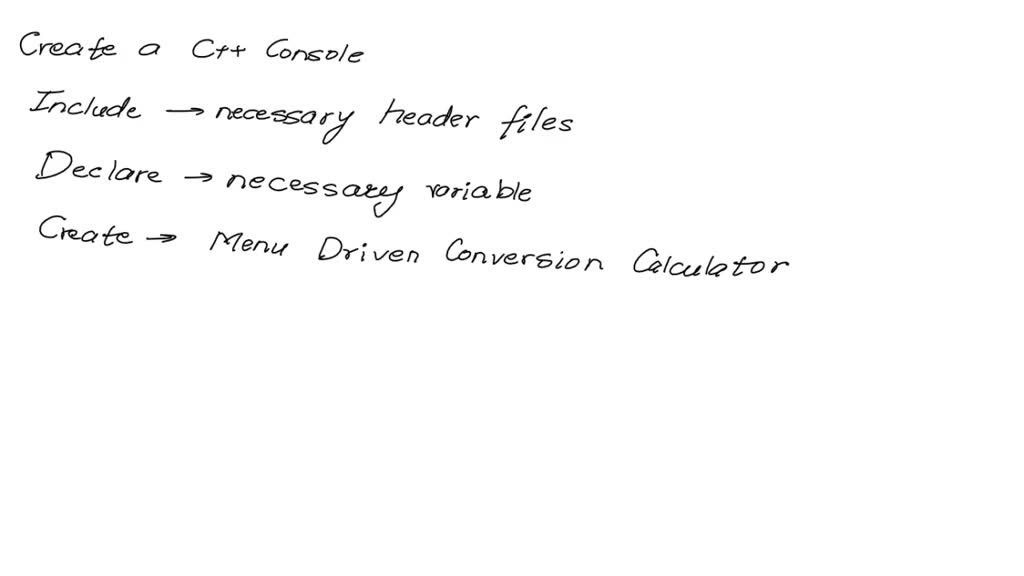 Create a C++ Console
Include → necessary header files
Declare → necessary variable
Create → Menu Driven Conversion Calculator